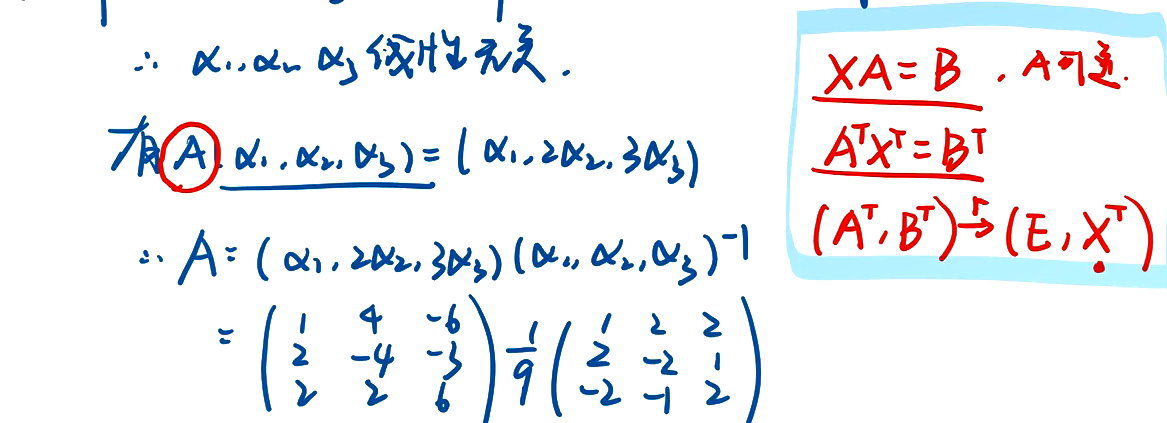 ∴ α₁,α₂,α₃线性无关.
有A(α₁,α₂,α₃)=(α₁,2α₂,3α₃)
∴ A=(α₁,2α₂,3α₃)(α₁,α₂,α₃)⁻¹
= (1 4 -6
2 -4 -3
2 2 6) 1/9 (1 2 2
2 -2 1
-2 -1 2)
XA=B , A可逆.
AᵀXᵀ=Bᵀ
(Aᵀ,Bᵀ) r→ (E,Xᵀ)